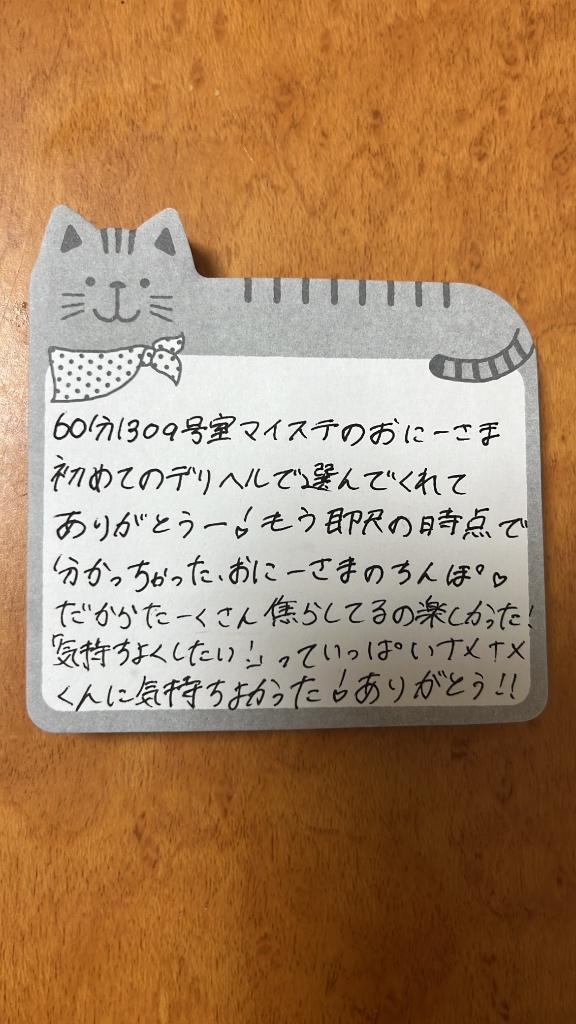 60分1309号室マイステのおにーさま
初めてのデリヘルで選んでくれて
ありがとうー! もう即尺の時点で
分かっちゃった、おにーさまのちんぽ♡
だからたーくさん焦らしてるの楽しかった!
「気持ちよくしたい!」っていっぱいナメナメ
くんに気持ちよかった!ありがとう!!